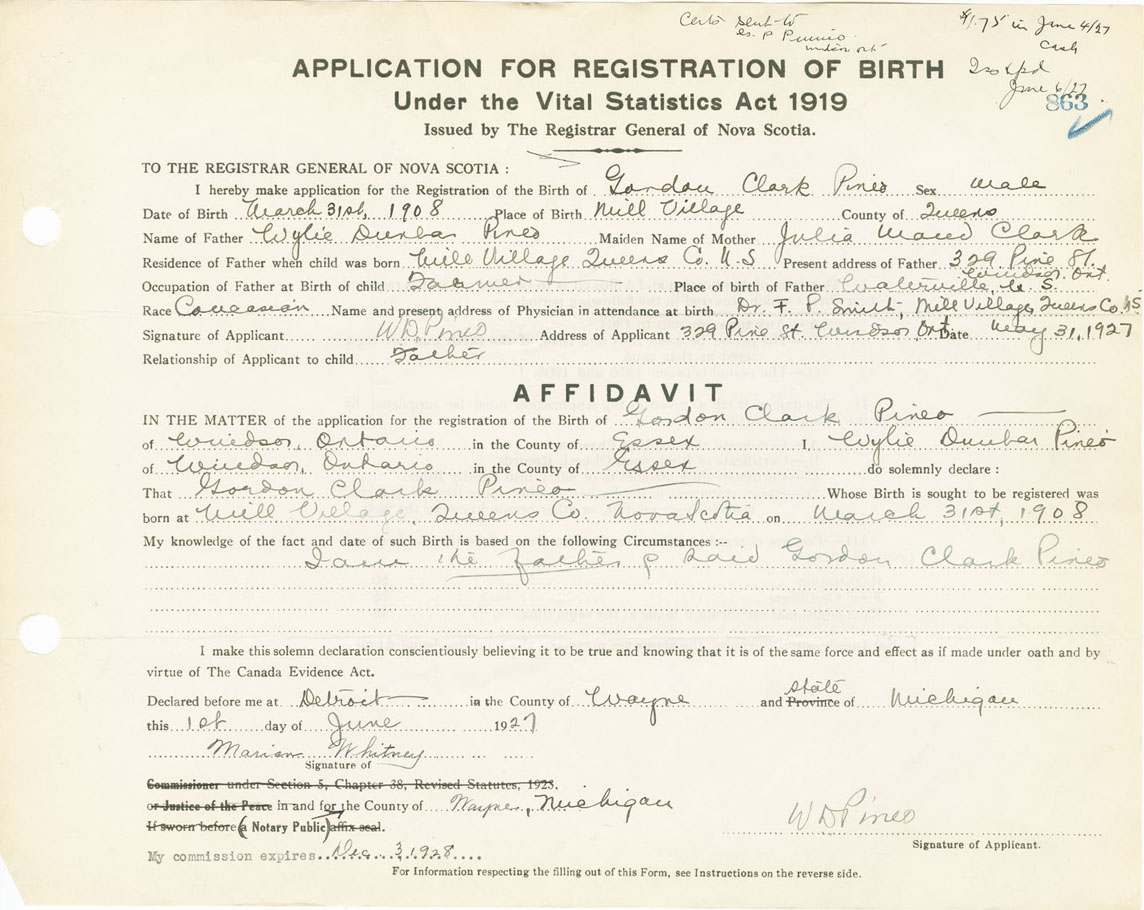 Certs sent to
as p
$1.75 in June 4/27
Cash
June 6/27
863
APPLICATION FOR REGISTRATION OF BIRTH
Under the Vital Statistics Act 1919
Issued by The Registrar General of Nova Scotia.
TO THE REGISTRAR GENERAL OF NOVA SCOTIA :
I hereby make application for the Registration of the Birth of Gordon Clark Pineo Sex male
Date of Birth March 31st, 1908 Place of Birth Mill Village County of Queens
Name of Father Wylie Dunbar Pineo Maiden Name of Mother Julia Maud Clark
Residence of Father when child was born Mill Village Queens Co. N.S Present address of Father 329 Pine St. Windsor, Ont.
Occupation of Father at Birth of child Farmer Place of birth of Father Waterville, N. S.
Race Caucasian Name and present address of Physician in attendance at birth Dr. F. P. Smith, Mill Village, Queens Co. NS
Signature of Applicant W D Pineo Address of Applicant 329 Pine St. Windsor, Ont Date May 31, 1927
Relationship of Applicant to child Father
AFFIDAVIT
IN THE MATTER of the application for the registration of the Birth of Gordon Clark Pineo
of Windsor, Ontario in the County of Essex I, Wylie Dunbar Pineo
of Windsor, Ontario in the County of Essex do solemnly declare :
That Gordon Clark Pineo Whose Birth is sought to be registered was
born at Mill Village, Queens Co. Nova Scotia on March 31st, 1908
My knowledge of the fact and date of such Birth is based on the following Circumstances :--
I am the father of said Gordon Clark Pineo
I make this solemn declaration conscientiously believing it to be true and knowing that it is of the same force and effect as if made under oath and by
virtue of The Canada Evidence Act.
Declared before me at Detroit in the County of Wayne and Province state of Michigan
this 1st day of June 1927
Marian Whitney
Signature of
Commissioner under Section 5, Chapter 38, Revised Statutes, 1923.
or Justice of the Peace in and for the County of Wayne, Michigan
If sworn before (a Notary Public) affix seal.
W D Pineo
Signature of Applicant.
My commission expires Dec. 3, 1928
For Information respecting the filling out of this Form, see Instructions on the reverse side.